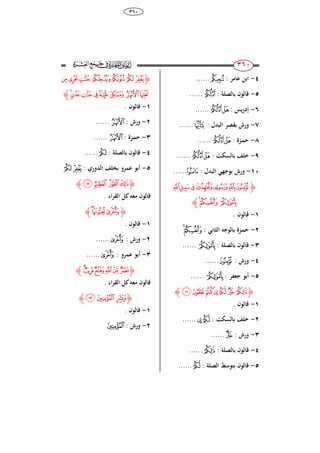 ٣٦٠
٣٦٠
٤- ابن عامر : تُنجِيكُم ......
٥- قالون بالصلة : أَدُلُّكُمُ ......
٦- إدريس : هَلْ أَدُلُّكُمُ ......
٧- ورش بقصر البدل : يَٰٓأَيُّهَا ......
٨- حمزة : هَلْ أَدُلُّكُمُ ......
٩- خلف بالسكت : هَلْ أَدُلُّكُمُ ......
١٠- ورش بوجهي البدل : ءَامَنُوا۟ ......
﴿ تُؤْمِنُونَ بِٱللَّهِ وَرَسُولِهِۦ وَتُجَٰهِدُونَ فِى سَبِيلِ ٱللَّهِ
بِأَمْوَٰلِكُمْ وَأَنفُسِكُمْ ﴾
١- قالون .
٢- حمزة بالوجه الثاني : وَأَنفُسِكُمْ ......
٣- قالون بالصلة : بِأَمْوَٰلِكُمْ ......
٤- ورش : تُؤْمِنُونَ ......
٥- أبو جعفر : بِأَمْوَٰلِكُمْ ......
﴿ ذَٰلِكُمْ خَيْرٌ لَّكُمْ إِن كُنتُمْ تَعْلَمُونَ ﴿١١﴾ ﴾
١- قالون .
٢- خلف بالسكت : لَّكُمْ إِن ......
٣- ورش : خَيْرٌ ......
٤- قالون بالصلة : ذَٰلِكُمْ ......
٥- قالون بتوسط الصلة : لَّكُمْ ......
﴿ يَغْفِرْ لَكُمْ ذُنُوبَكُمْ وَيُدْخِلْكُمْ جَنَّٰتٍ تَجْرِى مِن
تَحْتِهَا ٱلْأَنْهَٰرُ وَمَسَٰكِنَ طَيِّبَةً فِى جَنَّٰتِ عَدْنٍ ﴾
١- قالون .
٢- ورش : ٱلْأَنْهَٰرُ ......
٣- حمزة : ٱلْأَنْهَٰرُ ......
٤- قالون بالصلة : لَكُمْ ......
٥- أبو عمرو بخلف الدوري : يَغْفِرْ لَكُمْ
﴿ ذَٰلِكَ ٱلْفَوْزُ ٱلْعَظِيمُ ﴿١٢﴾ ﴾
قالون معه كل القراء .
﴿ وَأُخْرَىٰ تُحِبُّونَهَا ﴾
١- قالون .
٢- ورش : وَأُخْرَىٰ ......
٣- أبو عمرو : وَأُخْرَىٰ ......
﴿ نَصْرٌ مِّنَ ٱللَّهِ وَفَتْحٌ قَرِيبٌ ﴾
قالون معه كل القراء .
﴿ وَبَشِّرِ ٱلْمُؤْمِنِينَ ﴿١٣﴾ ﴾
١- قالون .
٢- ورش : ٱلْمُؤْمِنِينَ